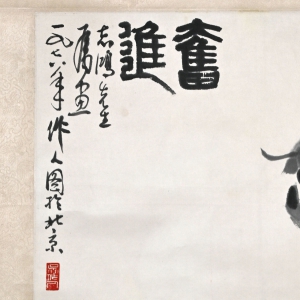 奮進
志鴻先生
属画
一九七八年作人图於北京